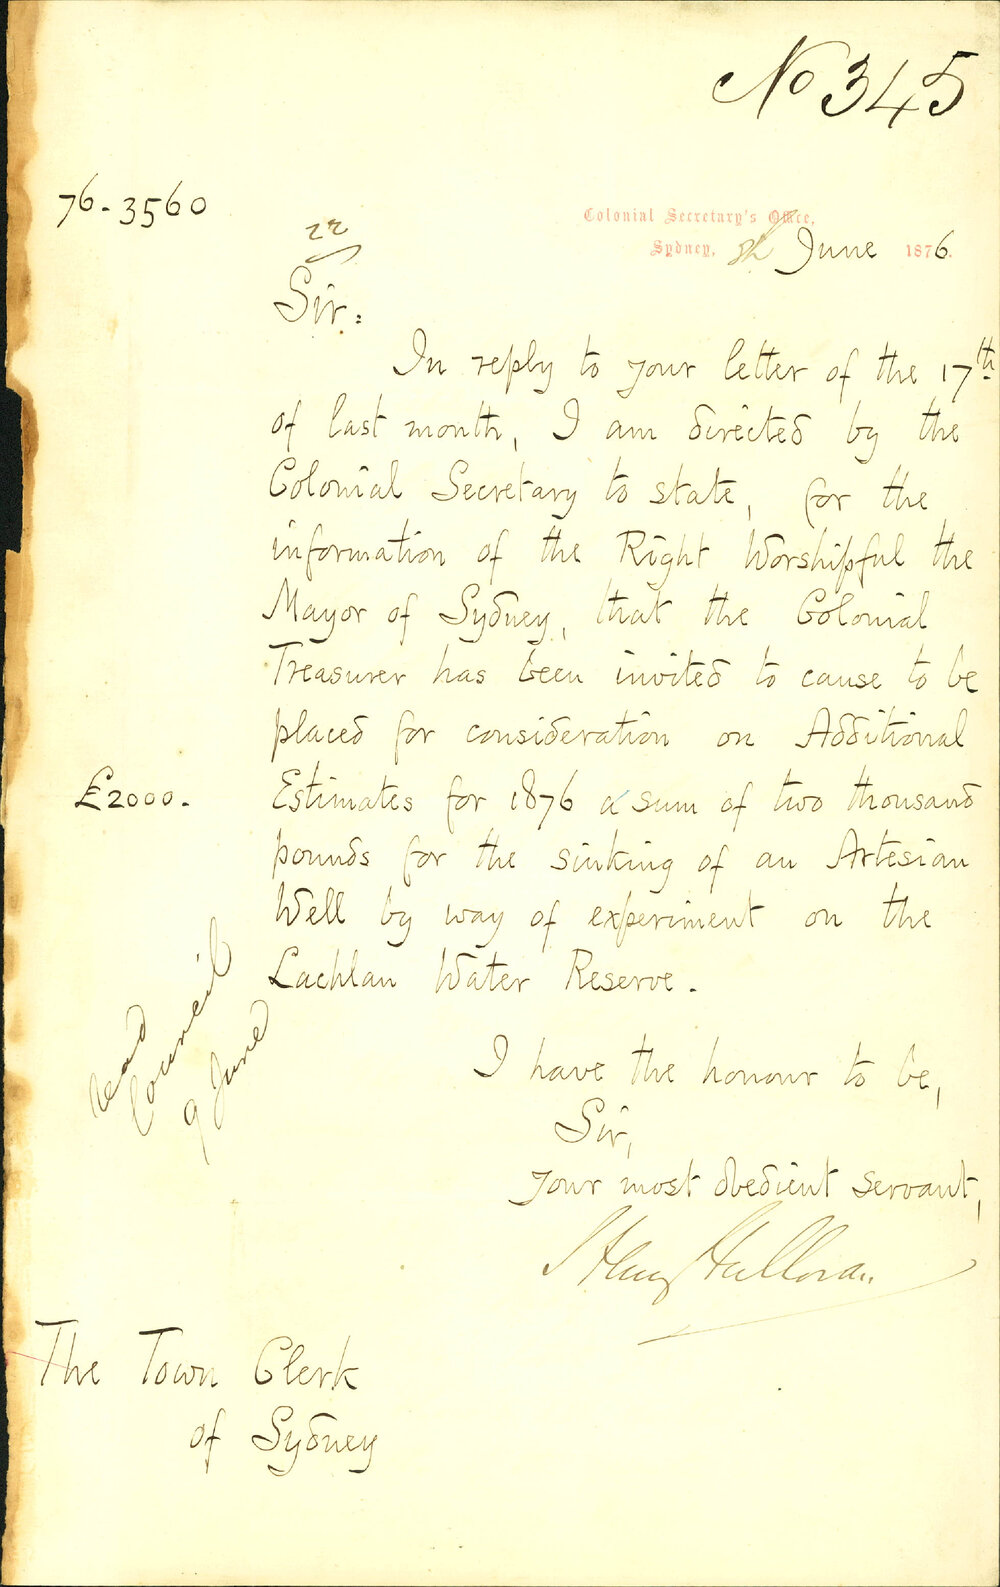 No 345
76-3560
Colonial Secretary's Office,
Sydney, 8th June 1876.
Sir:
In reply to your letter of the 17th
of last month, I am directed by the
Colonial Secretary to state, for the
information of the Right Worshipful the
Mayor of Sydney, that the Colonial
Treasurer has been invited to cause to be
placed for consideration on Additional
£2000.
Estimates for 1876 a sum of two thousand
pounds for the sinking of an Artesian
Well by way of experiment on the
Lachlan Water Reserve.
Read
Council
9 June
I have the honour to be,
Sir,
Your most obedient servant,
Henry Halloran
The Town Clerk
of Sydney